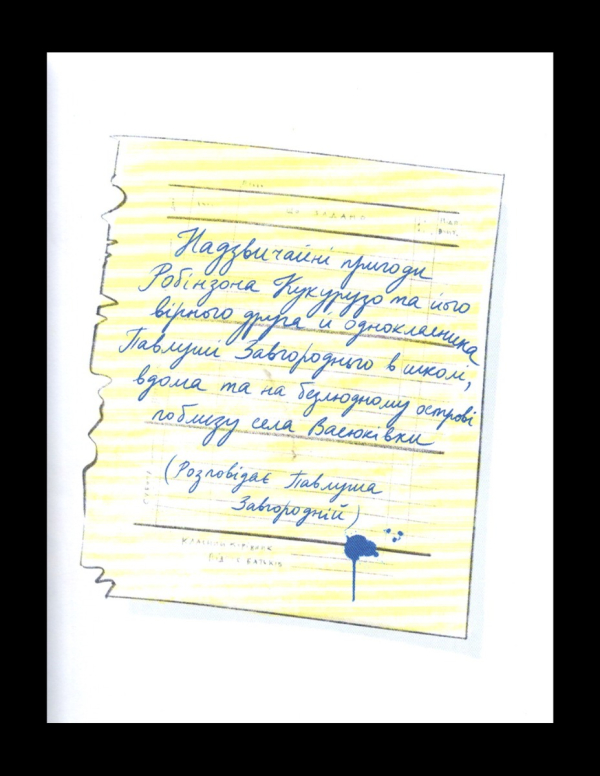 ЩО ЗАДАНО
Надзвичайні пригоди
Робінзона Кукурузо та його
вірного друга й однокласника
Павлуші Завгороднього в школі,
вдома та на безлюдному острові
поблизу села Васюківки
(Розповідає Павлуша
Завгородній)